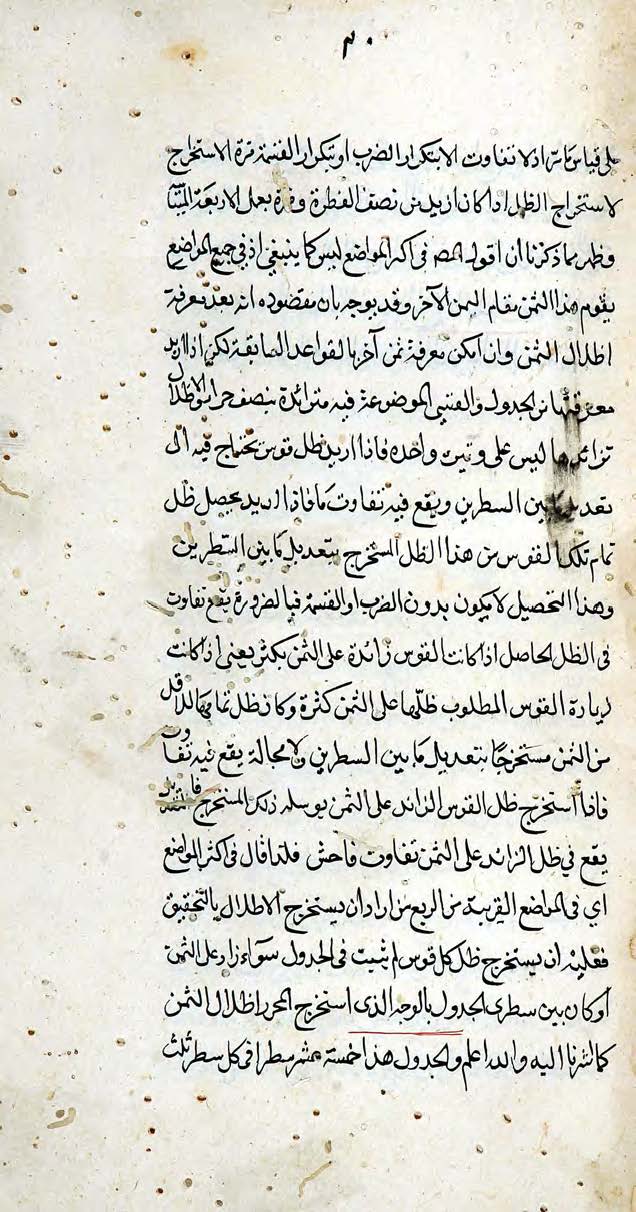 ٢٠
على قياس ما مر اذ لا تفاوت الا بتكرار الضرب او بتكرار القسمة مرة لاستخراج
لاستخراج الظل اذا كان ازيد من نصف القطر ومرة بعمل الاربعة
وظهر مما ذكرنا ان اقول المص فى اكثر المواضع ليس كما ينبغى اذ فى جميع المواضع
يقوم هذا الثمن مقام الثمن الآخر وقد يوجه بان مقصوده انه بعد معرفة
اظلال الثمن وان امكن معرفة ثمن آخر بالقواعد السابقة لكن اذا اريد
معرفتها من الجدول والقسى الموضوعة فيه متزائدة بنصف جزء والاظلال
تزائدها ليس على وتيرة واحدة فاذا اريد ظل قوس يحتاج فيه الى
تعديل ما بين السطرين ويقع فيه تفاوت ما فاذا اريد تحصيل ظل
تمام تلك القوس من هذا الظل المستخرج بتعديل ما بين السطرين
وهذا التحصيل لا يكون بدون الضرب او القسمة فبالضرورة يقع تفاوت
فى الظل الحاصل اذا كانت القوس زائدة على الثمن بكثير يعنى اذا كانت
زيادة القوس المطلوب ظلها على الثمن كثرة وكان ظل تمامها الاقل
من الثمن مستخرجا بتعديل ما بين السطرين ولا محالة يقع فيه تفاوت
فاذا استخرج ظل القوس الزائد على الثمن بوسيلة ذلك المستخرج
يقع فى ظل الزائد على الثمن تفاوت فاحش فلذا قال فى اكثر المواضع
اى فى المواضع القريبة من الربع من اراد ان يستخرج الاظلال بالتحقيق
فعليه ان يستخرج ظل كل قوس لم يثبت فى الجدول سواء زاد على الثمن
او كان بين سطرى الجدول بالوجه الذى استخرج المحرر اظلال الثمن
كما اشرنا اليه والله اعلم والجدول هذا خمسة عشر سطرا فى كل سطر ثلث